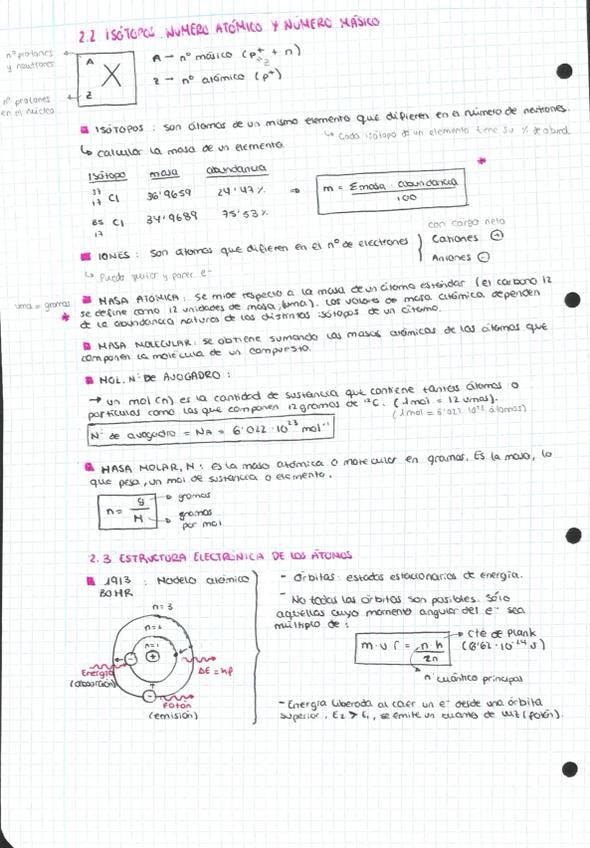 2.2 ISÓTOPOS. NÚMERO ATÓMICO Y NÚMERO MÁSICO
nº protones
y neutrones
A
X
Z
A → nº másico (p⁺ + n)
z
z → nº atómico (p⁺)
nº protones
en el núcleo
ISÓTOPOS : son átomos de un mismo elemento que difieren en el número de neutrones.
↳ Cada isótopo de un elemento tiene su % de abund.
↳ calcular la masa de un elemento.
Isótopo masa abundancia
37
17 Cl 36'9659 24'47%
35
17 Cl 34'9689 75'53%
⇒ m = Σmasa · abundancia
100
*
con carga neta
IONES : son átomos que difieren en el nº de electrones } Cationes ⊕
Aniones ⊖
↳ Puede quitar y poner e⁻
uma = gramos
*
MASA ATÓMICA : se mide respecto a la masa de un átomo estándar (el carbono 12
se define como 12 unidades de masa, uma). Los valores de masa atómica dependen
de la abundancia natural de los distintos isótopos de un átomo.
MASA MOLECULAR : se obtiene sumando las masas atómicas de los átomos que
componen la molécula de un compuesto.
MOL. Nº DE AVOGADRO :
→ un mol (n) es la cantidad de sustancia que contiene tantas átomos o
partículas como las que componen 12 gramos de ¹²C. (1mol = 12 umas).
(1mol = 6'022 · 10²³ átomos)
Nº de avogadro = NA = 6'022 · 10²³ mol⁻¹
MASA MOLAR, M : es la masa atómica o molecular en gramos. Es la masa, lo
que pesa, un mol de sustancia o elemento.
n = g → gramos
M → gramos
por mol
2.3 ESTRUCTURA ELECTRÓNICA DE LOS ÁTOMOS
1913 : Modelo atómico
BOHR
n=3
n=2
n=1
Energía
(absorción)
ΔE = hf
Fotón
(emisión)
- Órbitas : estados estacionarios de energía.
- No todas las órbitas son posibles. Sólo
aquellas cuyo momento angular del e⁻ sea
múltiplo de :
m · v · r = n · h → Cte de Plank
2π
n cuántico principal
- Energía liberada al caer un e⁻ desde una órbita
superior, E₂ > E₁, se emite un cuanto de luz (fotón).